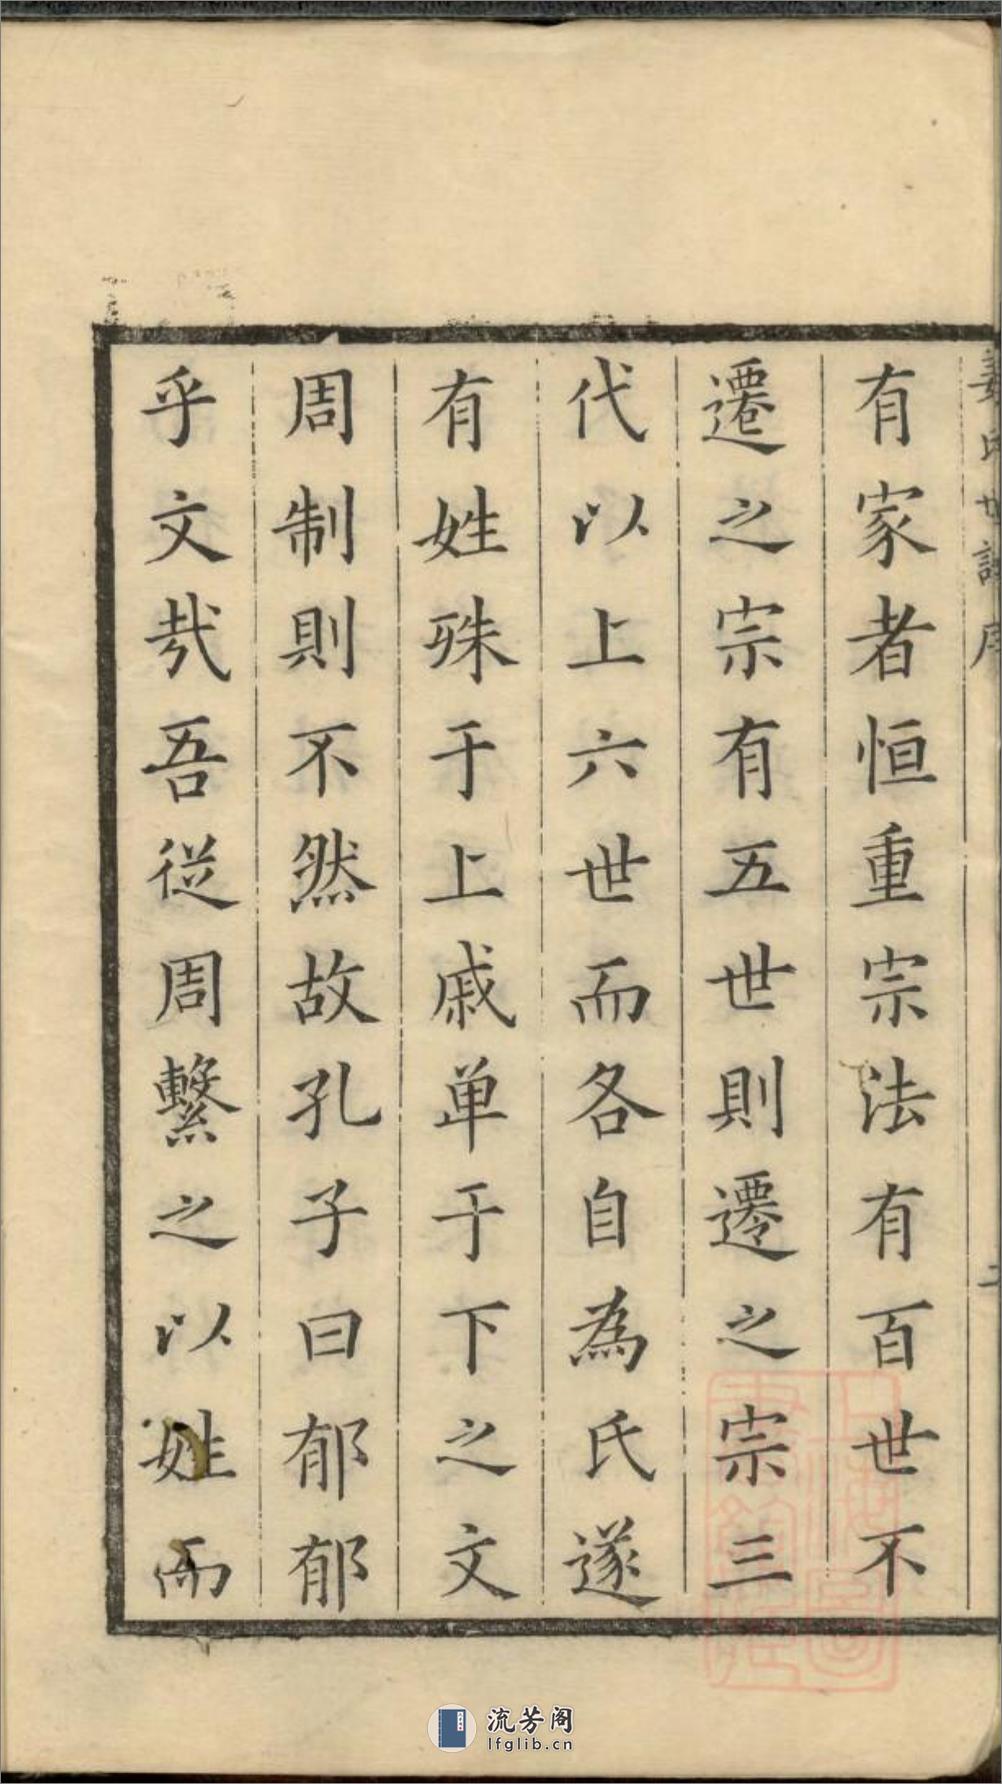 姜氏世譜序
二
有家者恒重宗法有百世不
遷之宗有五世則遷之宗三
代以上六世而各自為氏遂
有姓殊于上戚单于下之文
周制則不然故孔子曰郁郁
乎文㢤吾從周繫之以姓而
流芳阁
lfglib.cn